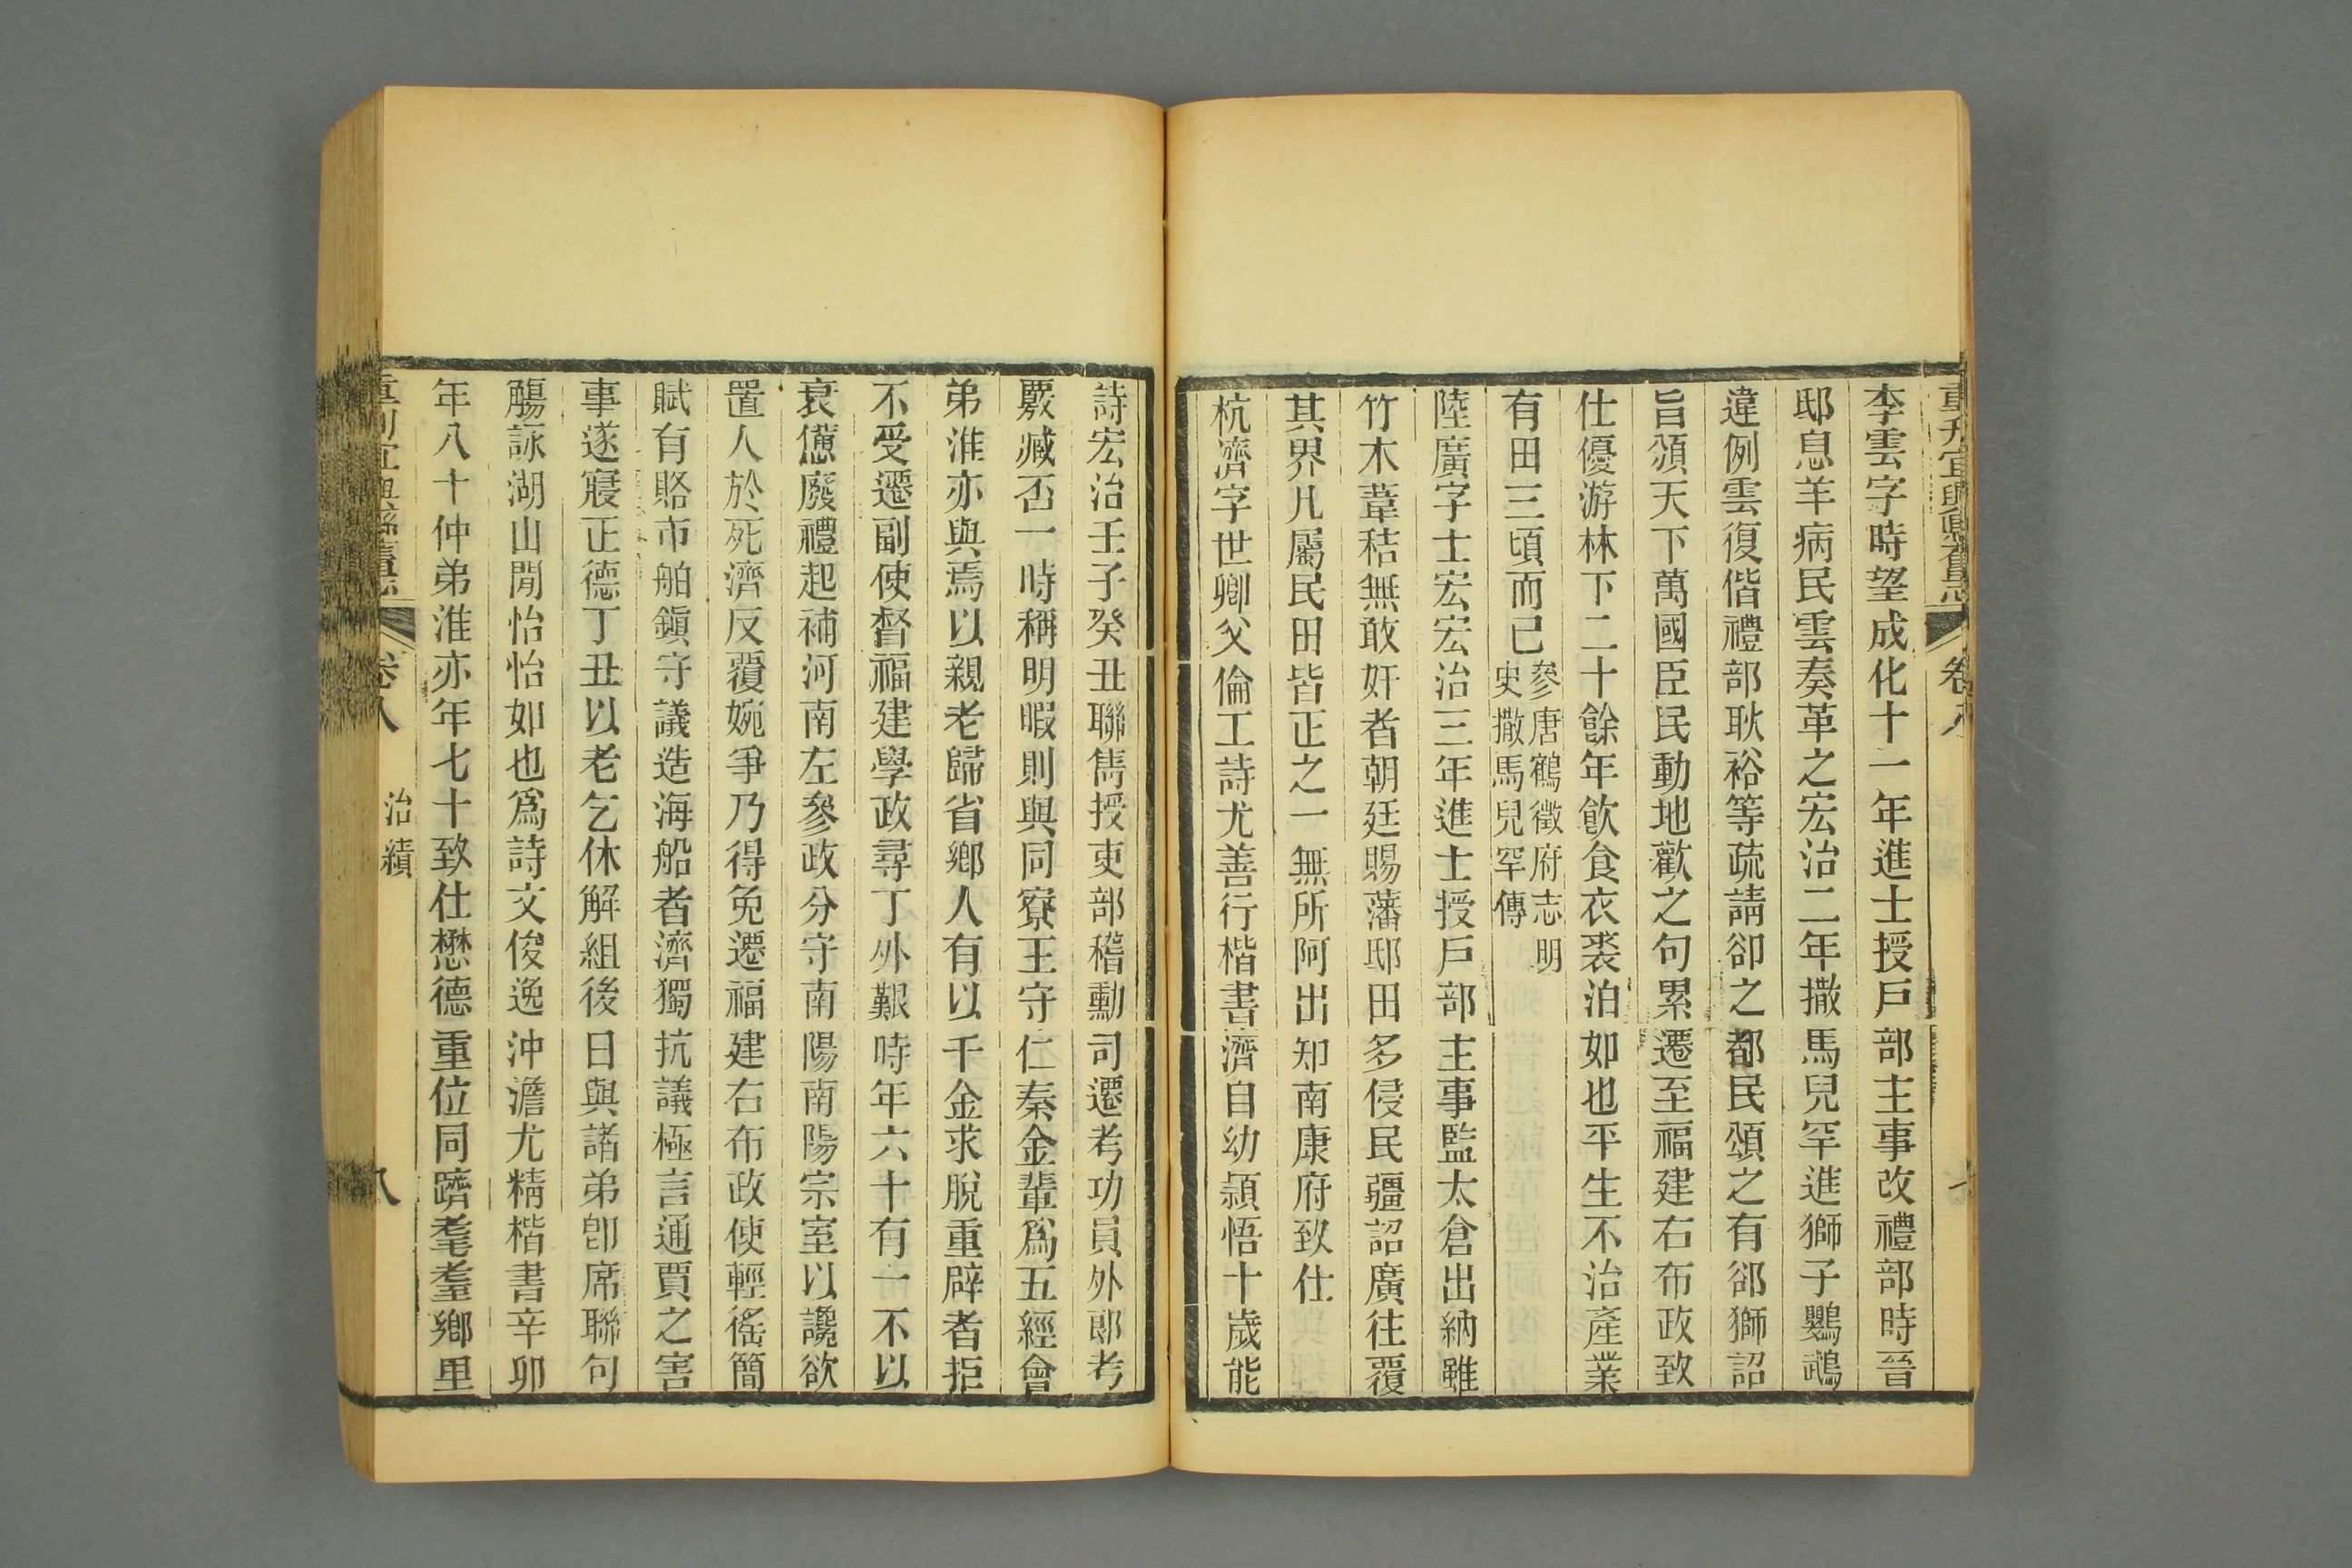 李雲字時望成化十一年進士授戶部主事改禮部時晉
邸息羊病民雲奏革之宏治二年撒馬兒罕進獅子鸚鵡
違例雲復偕禮部耿裕等疏請卻之都民頌之有郤獅詔
旨頒天下萬國臣民動地歡之句累遷至福建右布政致
仕優游林下二十餘年飲食衣裘泊如也平生不治產業
有田三頃而已參唐鶴徵府志明史撒馬兒罕傳
陸廣字士宏宏治三年進士授戶部主事監太倉出納雖
竹木葦秸無敢奸者朝廷賜藩邸田多侵民疆詔廣往覆
其界凡屬民田皆正之一無所阿出知南康府致仕
杭濟字世卿父倫工詩尤善行楷書濟自幼穎悟十歲能
詩宏治壬子癸丑聯雋授吏部稽勳司遷考功員外郎考
覈臧否一時稱明暇則與同寮王守仁秦金輩爲五經會
弟淮亦與焉以親老歸省鄉人有以千金求脫重辟者拒
不受遷副使督福建學政尋丁外艱時年六十有一不以
衰憊廢禮起補河南左參政分守南陽南陽宗室以讒欲
置人於死濟反覆婉爭乃得免遷福建右布政使輕徭簡
賦有賂市舶鎭守議造海船者濟獨抗議極言通賈之害
事遂寢正德丁丑以老乞休解組後日與諸弟卽席聯句
觴詠湖山閒怡怡如也爲詩文俊逸沖澹尤精楷書辛卯
年八十仲弟淮亦年七十致仕懋德重位同躋耄耋鄉里
卷八
治績
八